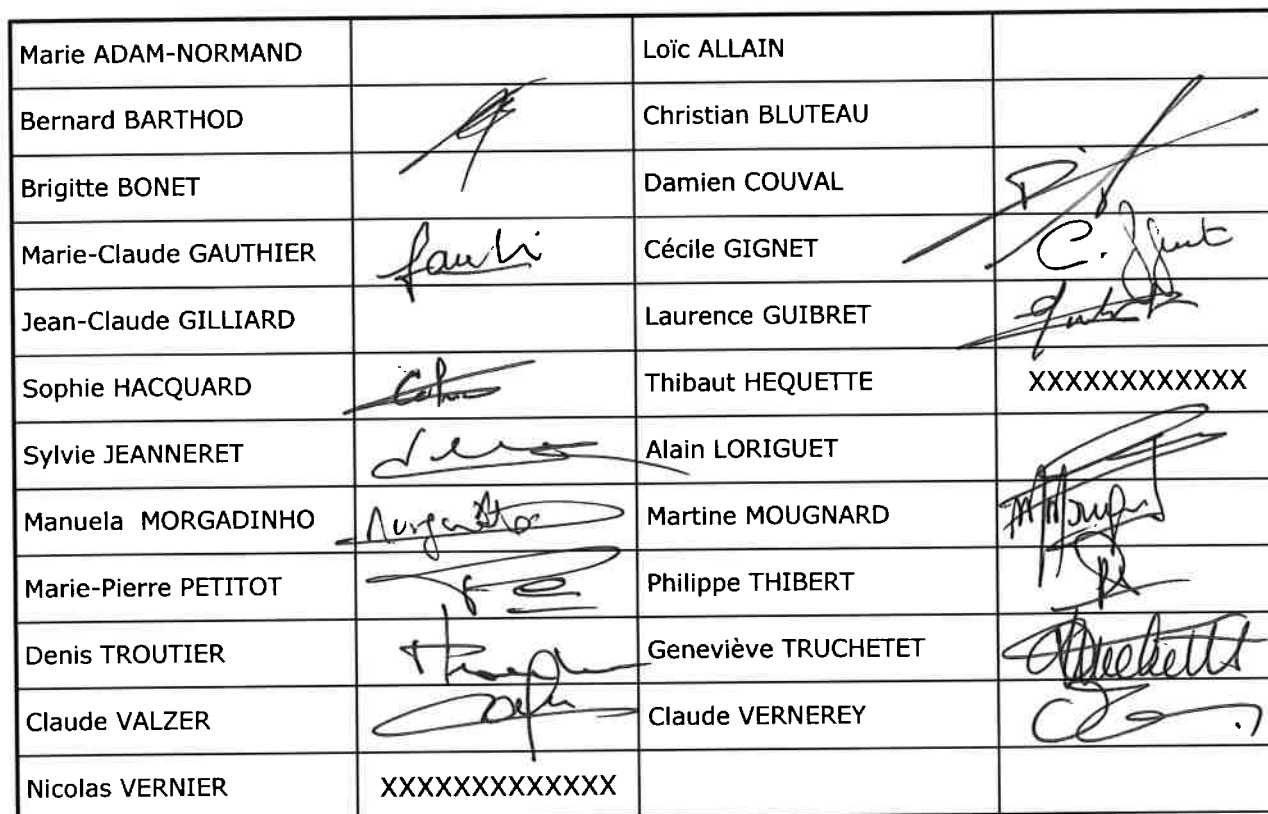 Marie ADAM-NORMAND Loïc ALLAIN
Bernard BARTHOD Christian BLUTEAU
Brigitte BONET Damien COUVAL
Marie-Claude GAUTHIER Cécile GIGNET
Jean-Claude GILLIARD Laurence GUIBRET
Sophie HACQUARD Thibaut HEQUETTE XXXXXXXXXXXX
Sylvie JEANNERET Alain LORIGUET
Manuela MORGADINHO Martine MOUGNARD
Marie-Pierre PETITOT Philippe THIBERT
Denis TROUTIER Geneviève TRUCHETET
Claude VALZER Claude VERNEREY
Nicolas VERNIER XXXXXXXXXXXXX